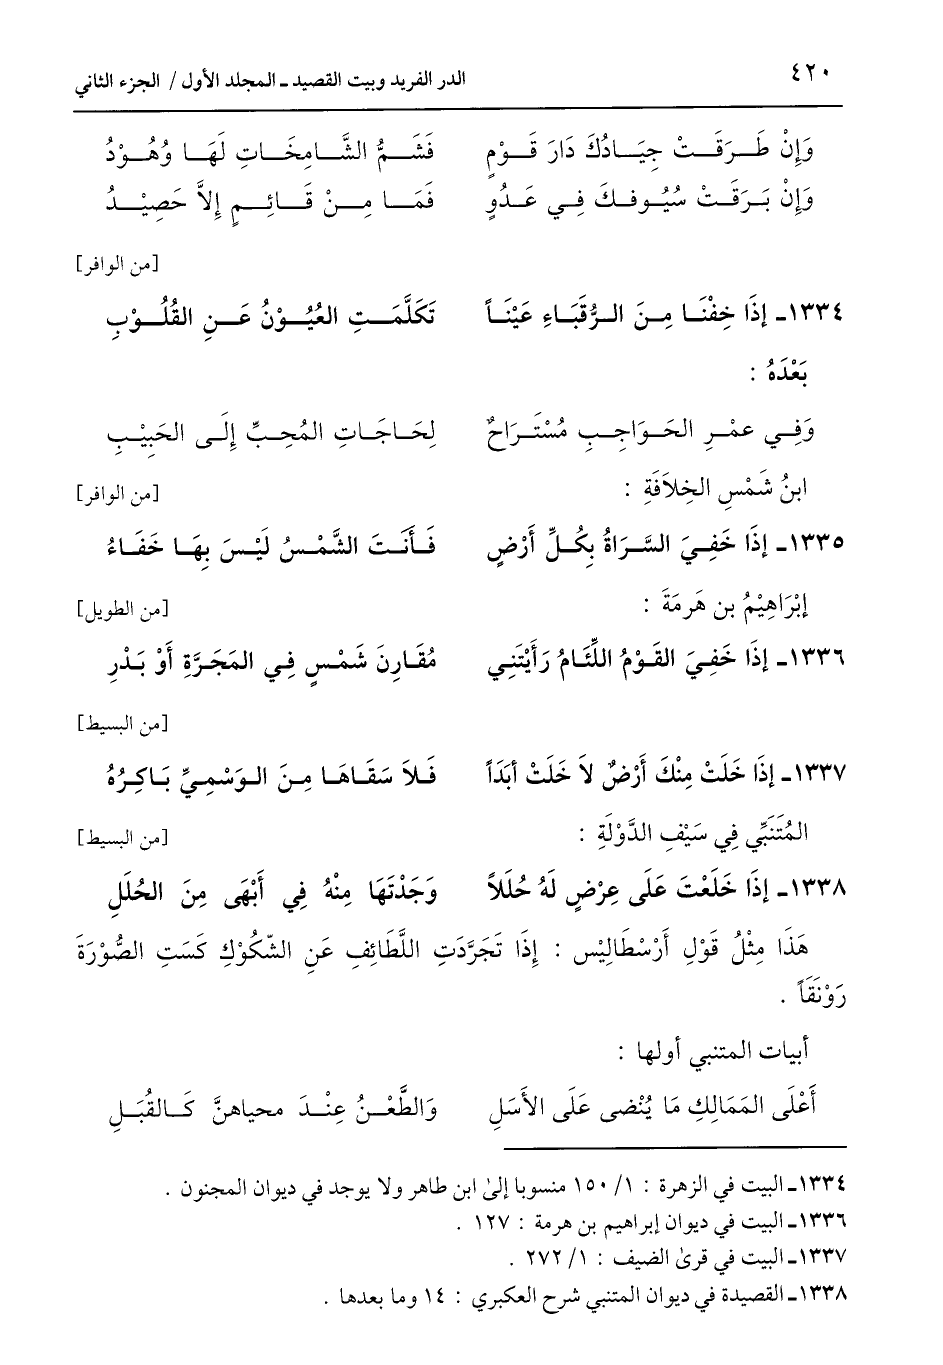 ٤٢٠ الدر الفريد وبيت القصيد ـ المجلد الأول / الجزء الثاني
وَإِنْ طَـرَقَـتْ جِيَـادُكَ دَارَ قَـوْمٍ فَشَـمُّ الشَّـامِخَـاتِ لَهَـا وُهُـوْدُ
وَإِنْ بَـرَقَـتْ سُيُـوفـكَ فِـي عَـدُوٍ فَمَـا مِـنْ قَـائِـمٍ إِلاَّ حَصِيْـدُ
[من الوافر]
١٣٣٤ـ إِذَا خِفْنَـا مِـنَ الـرُّقَبَـاءِ عَيْنَـاً تَكَلَّمَـتِ العُيُـوْنُ عَـنِ القُلُـوْبِ
بَعْدَهُ :
وَفِـي عمْـرِ الحَـوَاجِـبِ مُسْتَـرَاحٌ لِحَـاجَـاتِ المُحِـبِّ إِلَـى الحَبِيْـبِ
ابنُ شَمْسِ الخِلاَفَةِ : [من الوافر]
١٣٣٥ـ إِذَا خَفِـيَ السَّـرَاةُ بِكُـلِّ أَرْضٍ فَـأَنَـتَ الشَّمْـسُ لَيْـسَ بِهَـا خَفَـاءُ
إِبْرَاهِيْمُ بن هَرمَةَ : [من الطويل]
١٣٣٦ـ إِذَا خَفِـيَ القَـوْمُ اللِّئَـامُ رَأَيْتَنِـي مُقَـارِنَ شَمْـسٍ فِـي المَجَـرَّةِ أَوْ بَـدْرِ
[من البسيط]
١٣٣٧ـ إِذَا خَلَتْ مِنْكَ أَرْضٌ لاَ خَلَتْ أبَدَاً فَـلاَ سَقَـاهَـا مِـنَ الـوَسْمِـيِّ بَـاكِـرُهُ
المُتَنَبِّي فِي سَيْفِ الدَّوْلَةِ : [من البسيط]
١٣٣٨ـ إِذَا خَلَعْتَ عَلَى عِرْضٍ لَهُ حُلَلاً وَجَدْتَهَا مِنْهُ فِي أَبْهَى مِنَ الحُلَلِ
هَذَا مِثْلُ قَوْلِ أَرْسْطَالِيْس : إِذَا تَجَرَّدَتِ اللَّطَائِفِ عَنِ الشّكُوْكِ كَسَتِ الصُّوْرَةَ
رَوْنَقَاً .
أبيات المتنبي أولها :
أَعْلَى المَمَالِكِ مَا يُنْضى عَلَى الأَسَلِ وَالطَّعْـنُ عِنْـدَ محياهنَّ كَـالقُبَـلِ
١٣٣٤ـ البيت في الزهرة : ١/ ١٥٠ منسوبا إلىٰ ابن طاهر ولا يوجد في ديوان المجنون .
١٣٣٦ـ البيت في ديوان إبراهيم بن هرمة : ١٢٧ .
١٣٣٧ـ البيت في قرىٰ الضيف : ١/ ٢٧٢ .
١٣٣٨ـ القصيدة في ديوان المتنبي شرح العكبري : ١٤ وما بعدها .